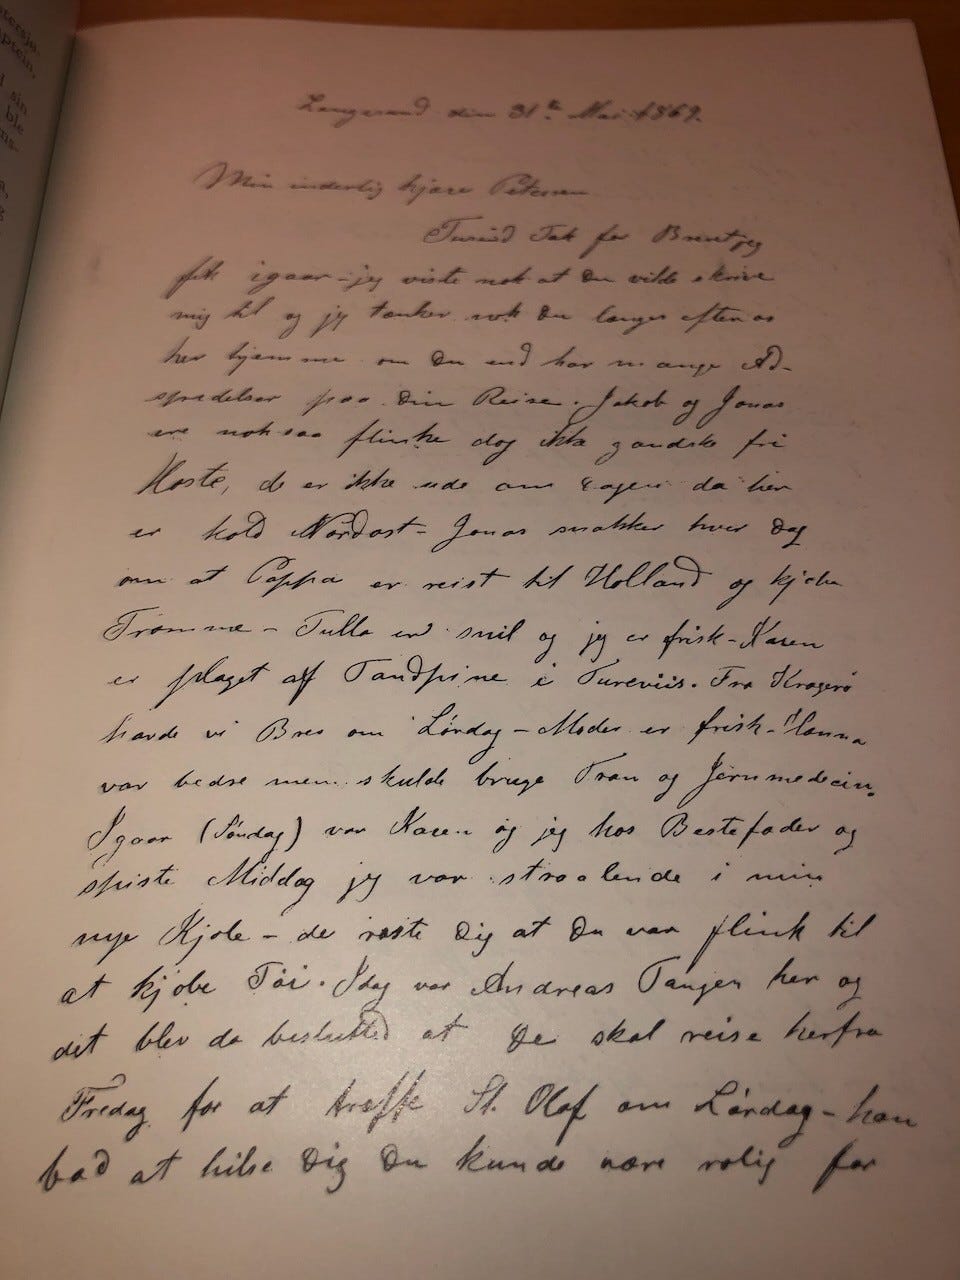 tersjø-
ptein,
sin
ble
ns-
Langesund den 31te Mai 1869.
Min inderlig kjære Petersen
Tusind Tak for Brevet jeg
fik igaar - jeg viste nok at Du vilde skrive
mig til og jeg tænker nok Du længes efter os
her hjemme om Du end har mange Ad-
spredelser paa Din Reise. Jakob og Jonas
ere nok saa flinke dog ikke gandske fri
Hoste, de er ikke ude om Dagen da her
er kold Nordost - Jonas snakker hver Dag
om at Pappa er reist til Holland og kjøbe
Tromme - Tulla er snil og jeg er frisk - Karen
er plaget af Tandpine i Tureviis. Fra Kragerø
havde vi Brev om Lørdag - Moder er frisk - Hanna
var bedre men skulde bruge Tran og Jernmedecin.
Igaar (Søndag) var Karen og jeg hos Bestefader og
spiste Middag jeg var straalende i min
nye Kjole - de roste Dig at Du var flink til
at kjøbe Tøi. Idag var Andreas Tangen her og
det blev da beslutted at De skal reise herfra
Fredag for at træffe St. Olaf om Lørdag - han
bad at hilse Dig Du kunde være rolig for